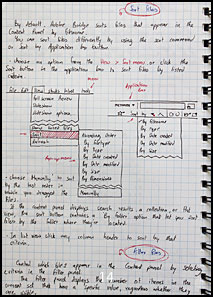 Sort files
By default, Adobe Bridge sorts files that appear in the
Content panel by Filename.
You can sort files differently by using the sort command
or Sort by Application bar button
choose an option from the View > Sort menu or click the
Sort button in the application bar to sort files by listed
criteria.
File Edit View Stacks Label Tools
Full Screen Preview
Slideshow
Slideshow options
Sort
Refresh
Ascending Order
By Filename
By Type
By Date created
By Date modified
By size
By Dimensions
Manually
By Filename
By Type
By Date created
By Date modified
By size
choose Manually to sort by
the last order in
which you dragged the
files.
If the content panel displays search results, a collection, or flat
view, the Sort button contains a By Folder option that lets you sort
files by the folder where they're located.
In list view click any column header to sort by that
criteria.
Filter files
Control which files appear in the Content panel by selecting
criteria in the Filter panel
The Filter panel displays the number of items in the
current set that have a specific value, regardless whether they
are visible